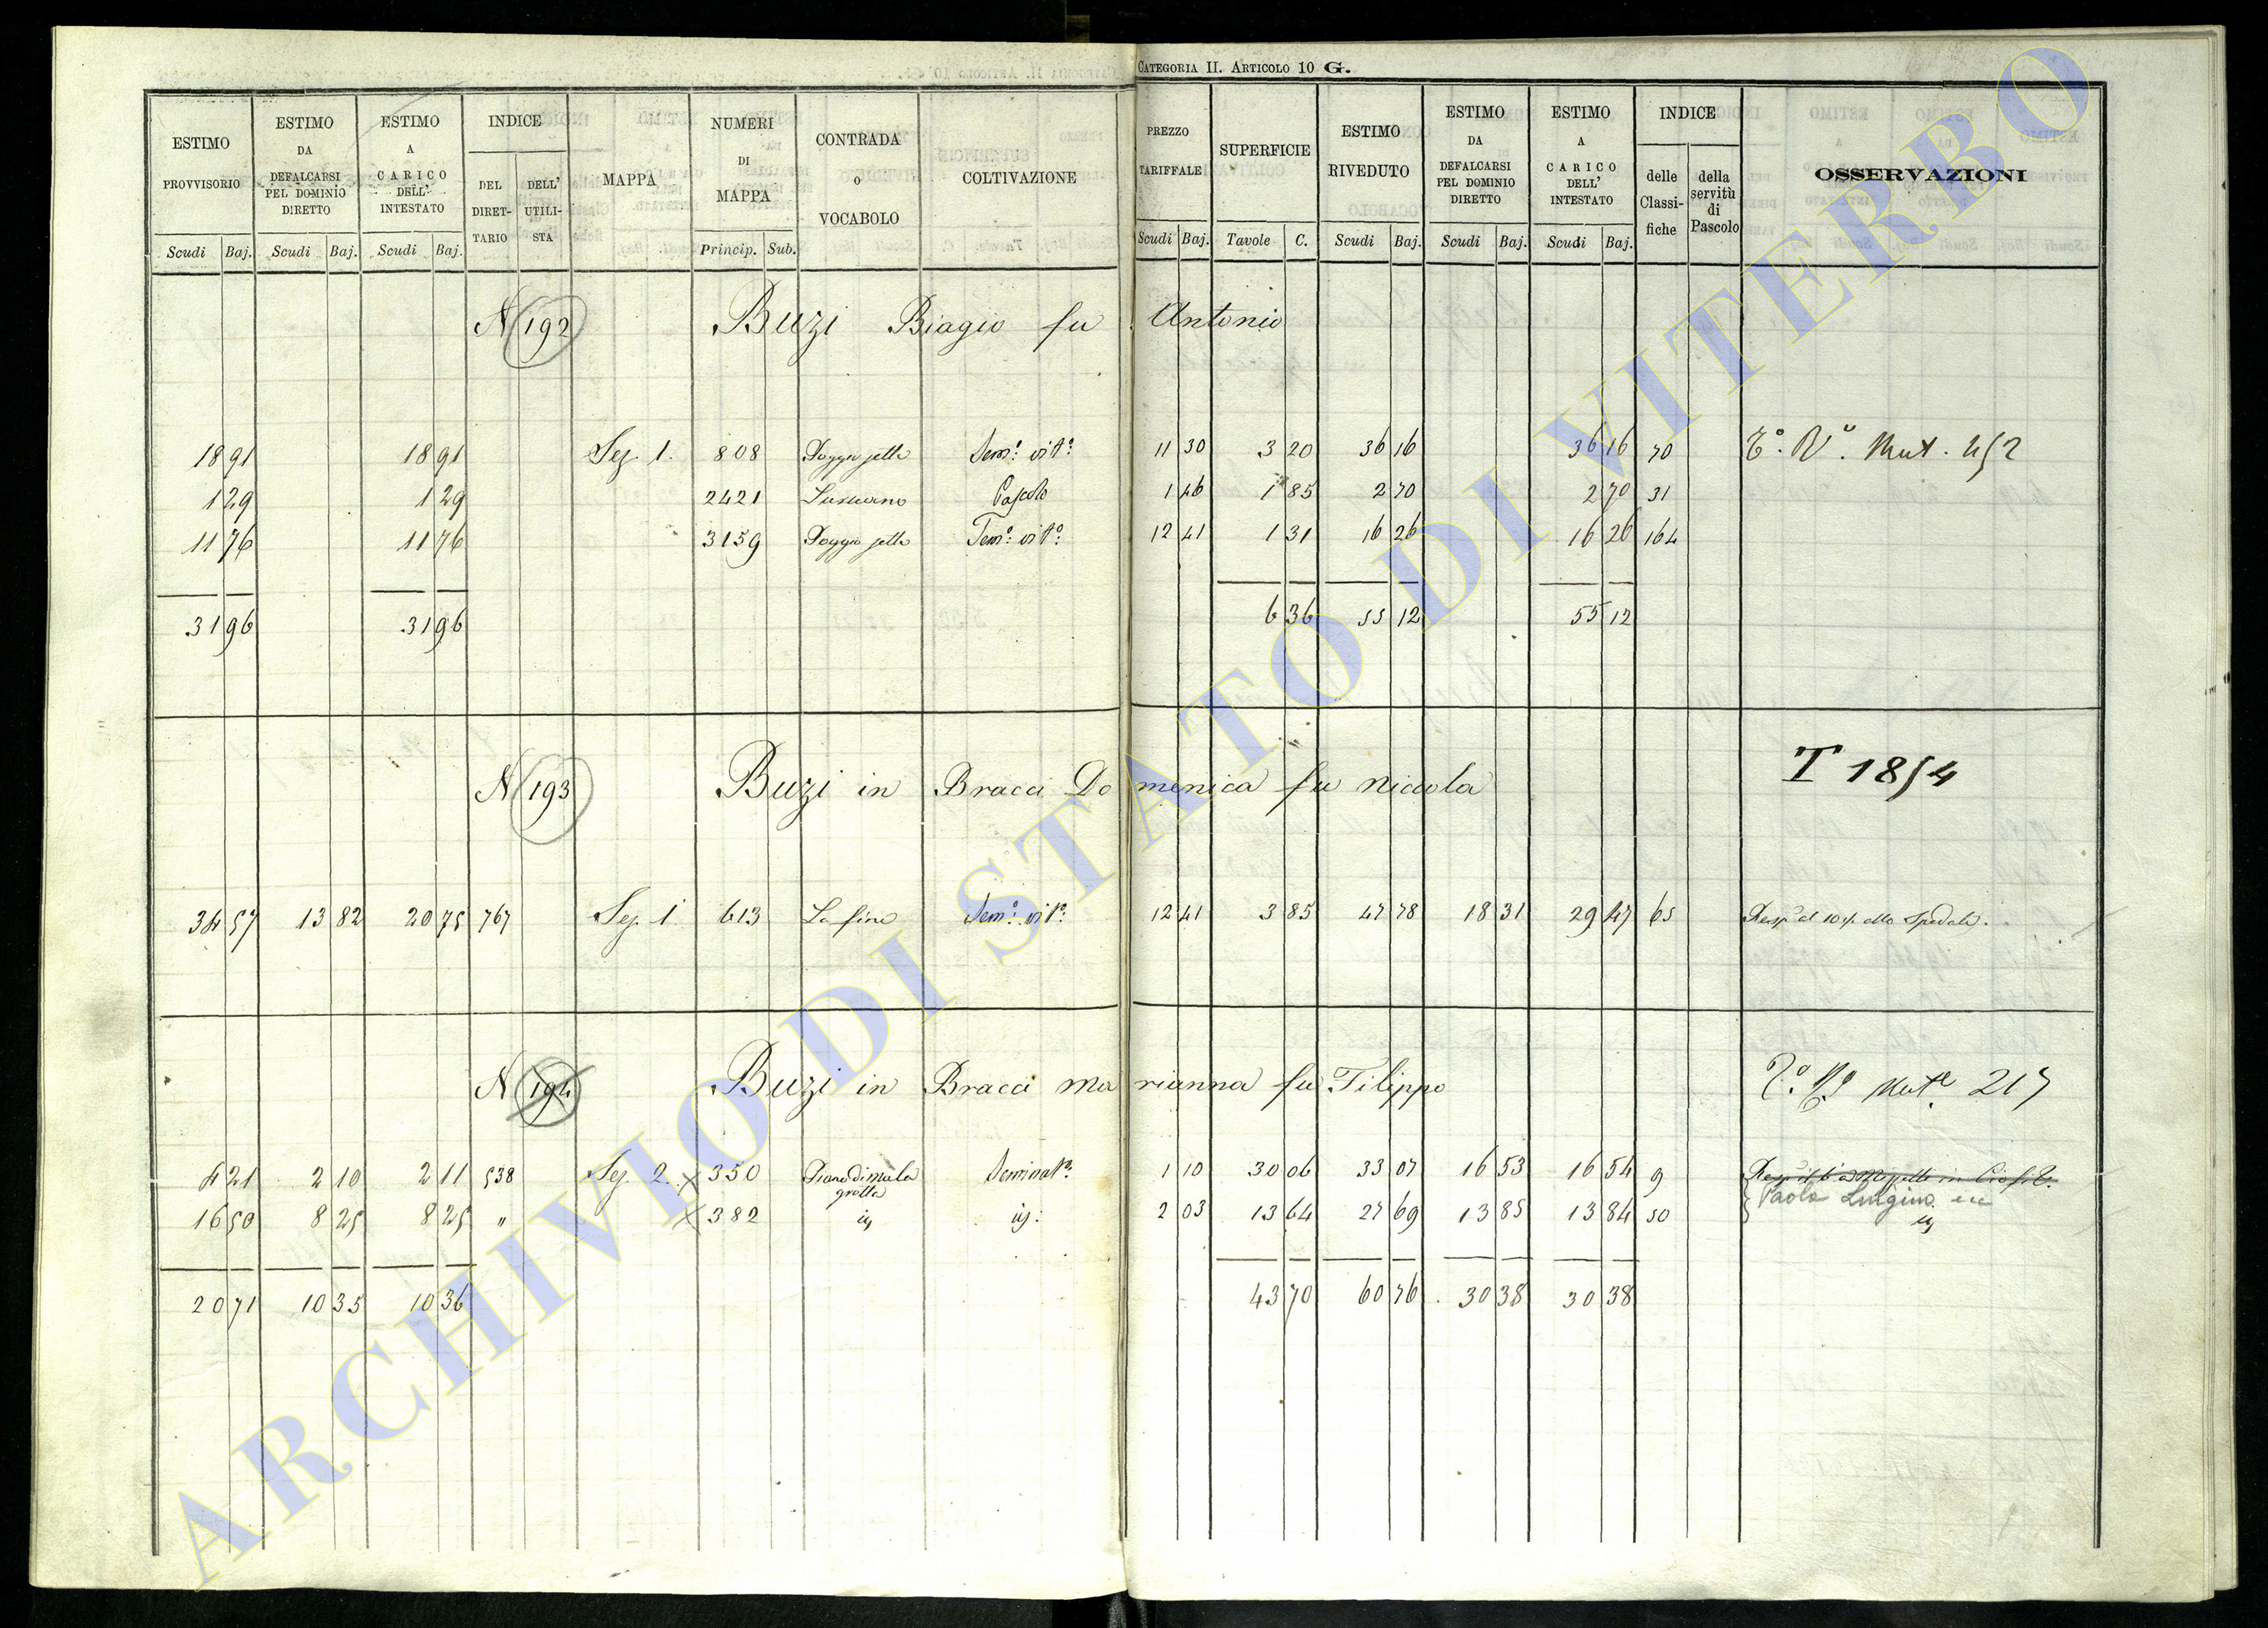 CATEGORIA II. ARTICOLO 10 G.
ESTIMO PROVVISORIO Scudi Baj.
ESTIMO DA DEFALCARSI PEL DOMINIO DIRETTO Scudi Baj.
ESTIMO A CARICO DELL' INTESTATO Scudi Baj.
INDICE DEL DIRETTARIO DELL' UTILISTA
MAPPA
NUMERI DI MAPPA Princip. Sub.
CONTRADA O VOCABOLO
COLTIVAZIONE
PREZZO TARIFFALE Scudi Baj.
SUPERFICIE Tavole C.
ESTIMO RIVEDUTO Scudi Baj.
ESTIMO DA DEFALCARSI PEL DOMINIO DIRETTO Scudi Baj.
ESTIMO A CARICO DELL' INTESTATO Scudi Baj.
INDICE delle Classifiche della servitù di Pascolo
OSSERVAZIONI
N 192 Buzi Biagio fu Antonio
18 91 18 91 Sez. 1. 808 Sem.o vit.o 11 30 3 20 36 16 36 16 70 Mut. 452
1 29 1 29 2421 Pascolo 1 46 1 85 2 70 2 70 31
11 76 11 76 3159 Sem.o vit.o 12 41 1 31 16 26 16 26 164
31 96 31 96 6 36 55 12 55 12
N 193 Buzi in Bracci Domenica fu Niccola T 1854
34 57 13 82 20 75 767 Sez. 1 613 Sem.o vit.o 12 41 3 85 47 78 18 31 29 47 65
N 194 Buzi in Bracci Marianna fu Filippo Mut.e 217
4 21 2 10 2 11 538 Sez. 2. 350 Piano di mula grotta Seminat.o 1 10 30 06 33 07 16 53 16 54 9
16 50 8 25 8 25 " 382 2 03 13 64 27 69 13 85 13 84 50 Paolo Luigino
20 71 10 35 10 36 43 70 60 76 30 38 30 38
ARCHIVIO DI STATO DI VITERBO